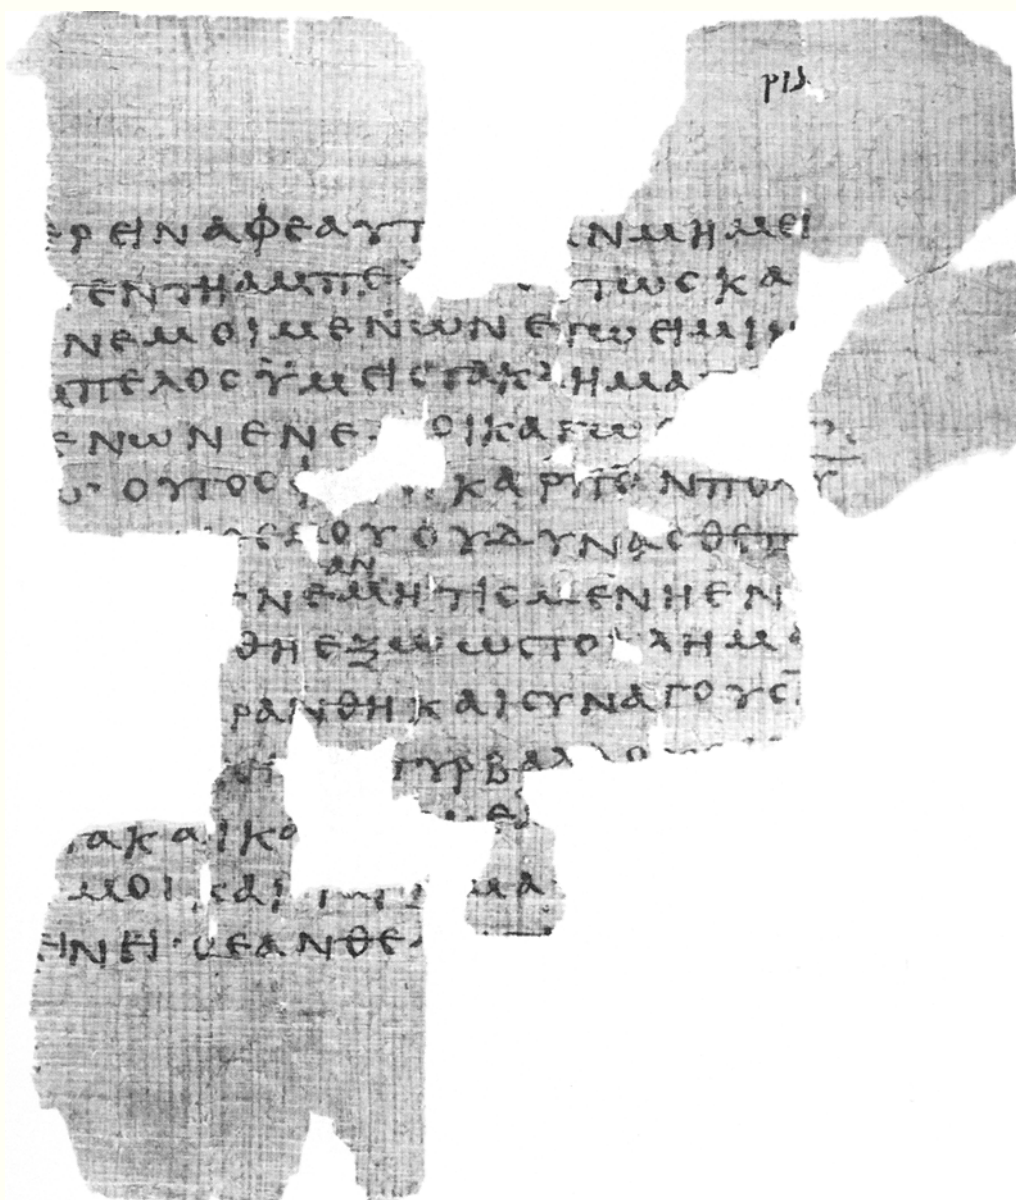 ριδ
ρειναφεαυτ ανμημει
εντηαμπε τωσκα
νεμοιμενωνεγωειμιη
μπελοσϋμειστακλημα
ενωνενε οικαγω
ουτοσφ καρπονπο
εμουουδυνασθεπ
αν
νεμητισμενηεν
θηεξωωστο λημα
ρανθηκαισυναγουσ
πυρβαλλο
ακαικο ει
μοικαι μα
εινη·οεανθε